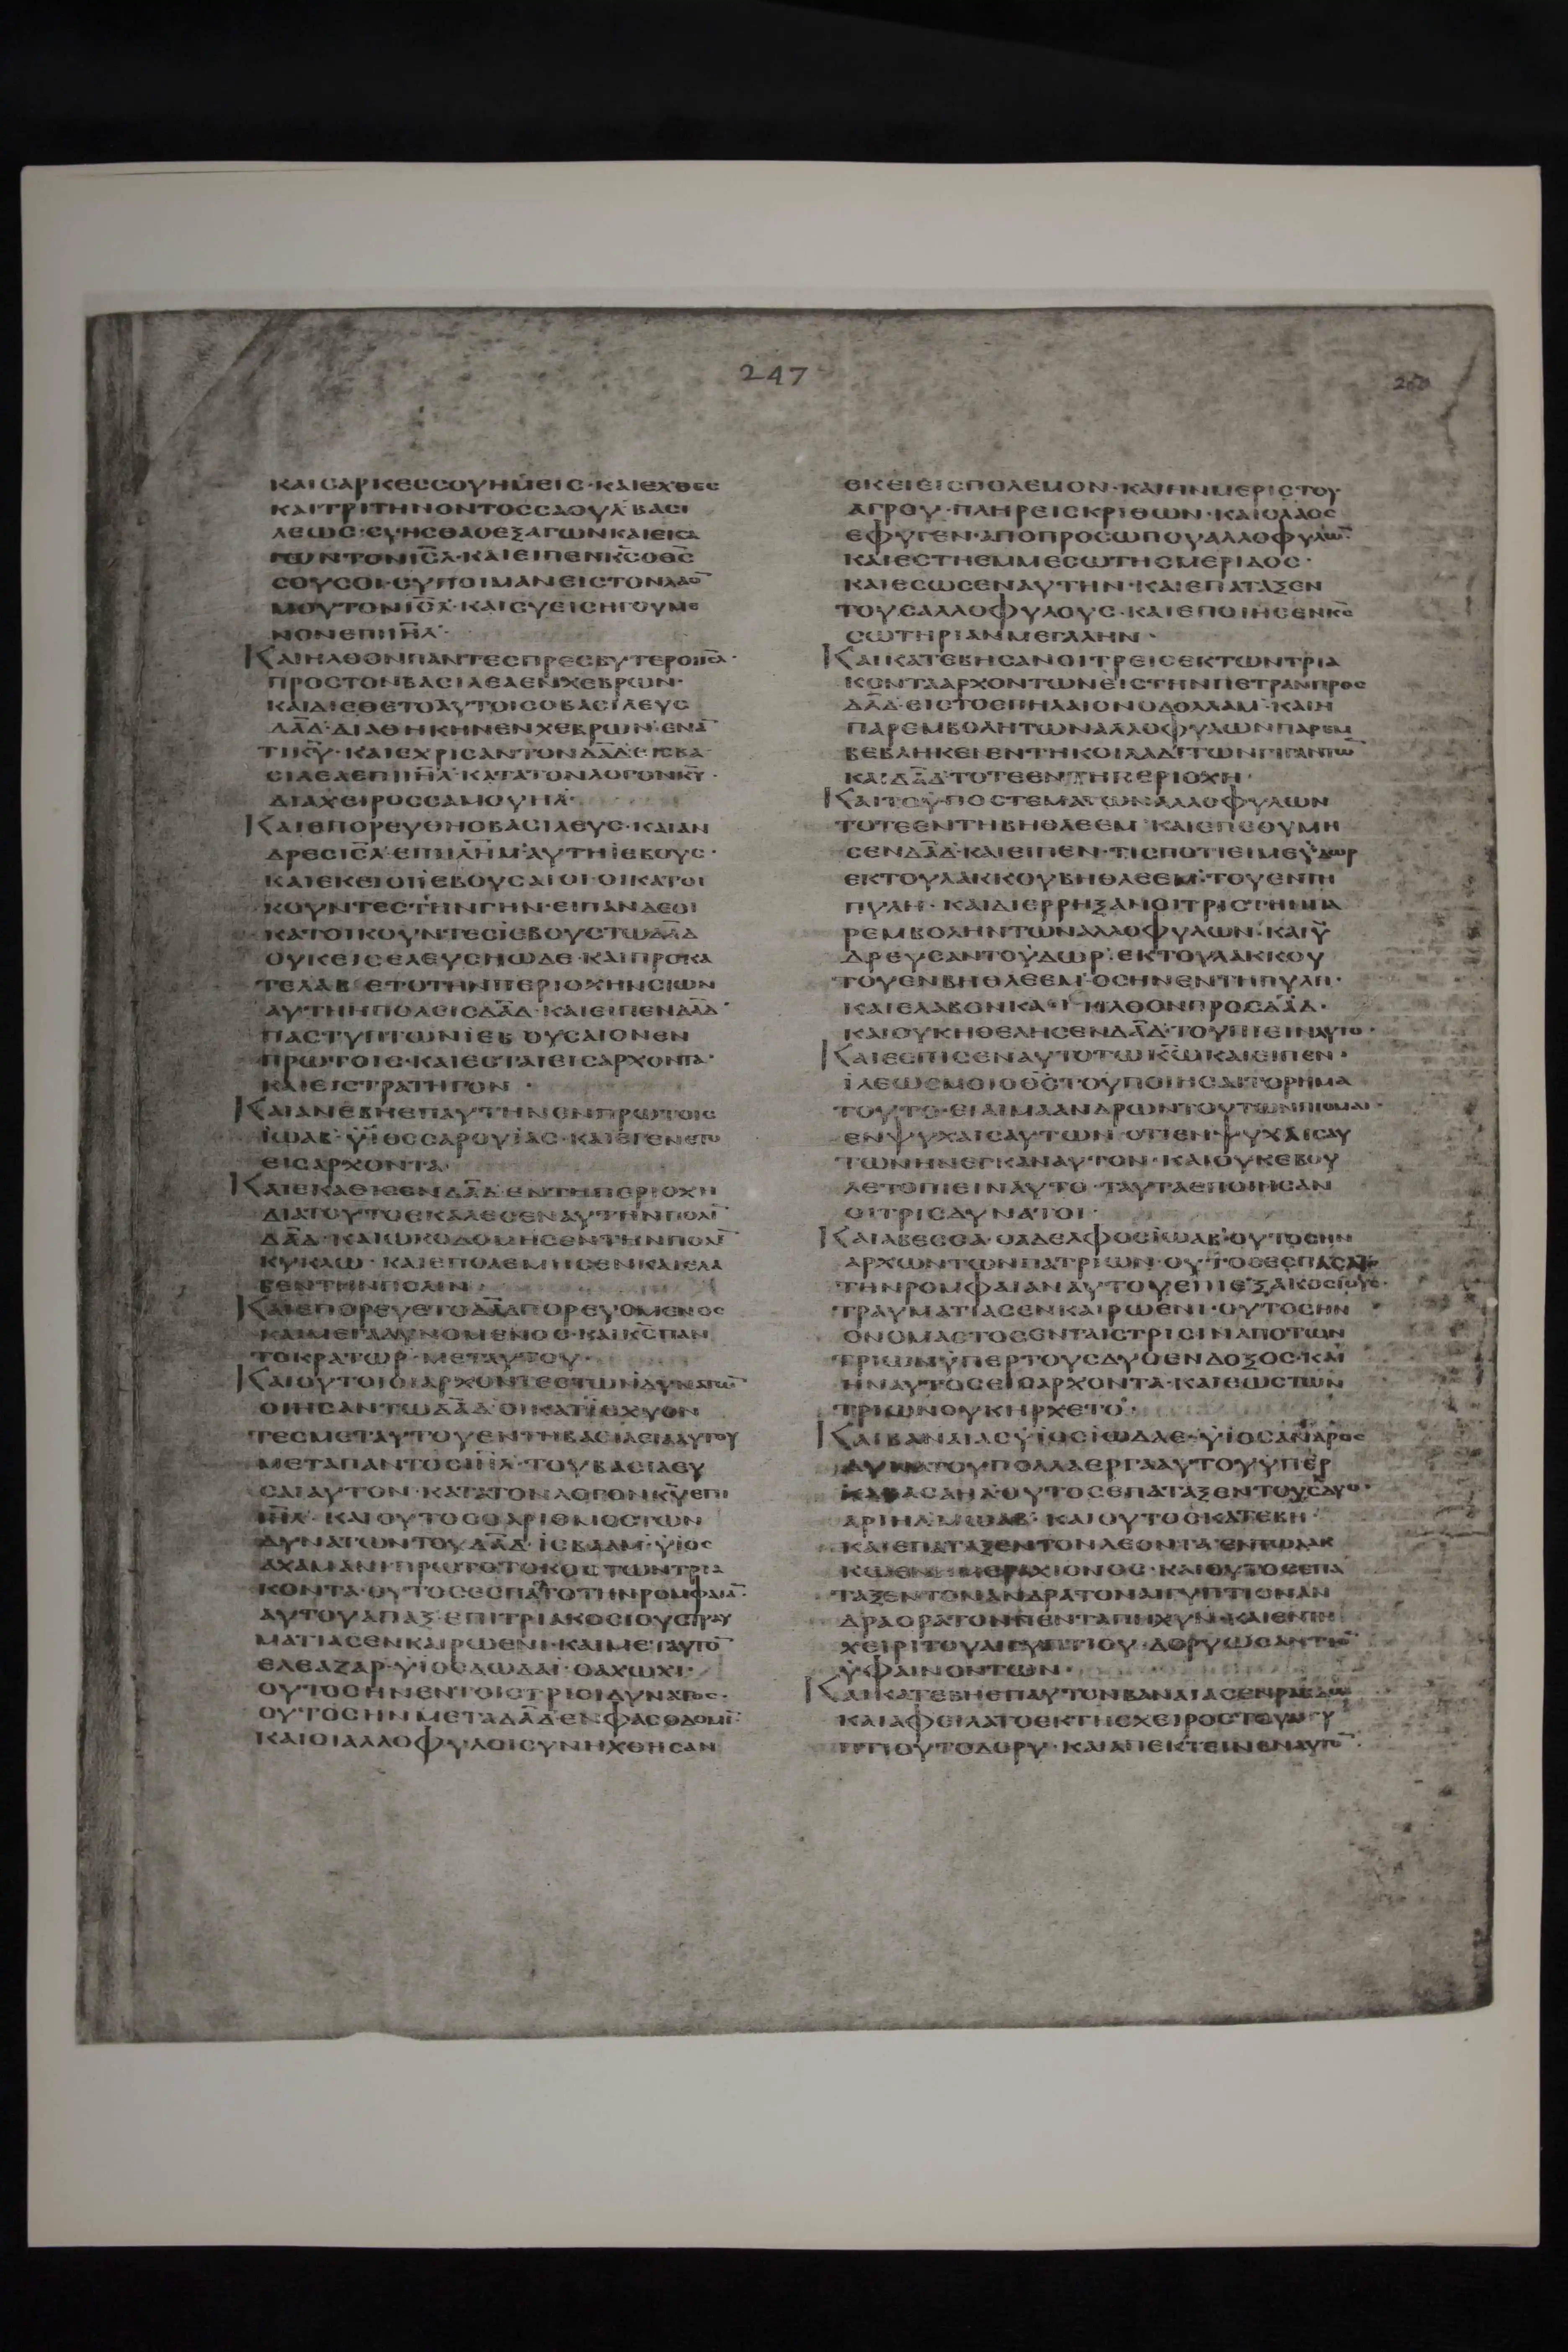 247
ΚΑΙ CΑΡΚΕC CΟΥ ΗΜΕΙC · ΚΑΙ ΕΧΘΕC
ΚΑΙ ΤΡΙΤΗΝ ΟΝΤΟC CΑΟΥΛ ΒΑCΙ
ΛΕΩC · CΥ ΗCΘΑ Ο ΕΞΑΓΩΝ ΚΑΙ ΕΙCΑ
ΓΩΝ ΤΟΝ ΙC̅Λ · ΚΑΙ ΕΙΠΕΝ Κ̅C Ο Θ̅C
CΟΥ CΟΙ · CΥ ΠΟΙΜΑΝΕΙC ΤΟΝ ΛΑΟ̅
ΜΟΥ ΤΟΝ ΙC̅Λ · ΚΑΙ CΥ ΕΙC ΗΓΟΥΜΕ
ΝΟΝ ΕΠΙ ΙΗ̅Λ ·
ΚΑΙ ΗΛΘΟΝ ΠΑΝΤΕC ΠΡΕCΒΥΤΕΡΟΙ ΙC̅Λ ·
ΠΡΟC ΤΟΝ ΒΑCΙΛΕΑ ΕΝ ΧΕΒΡΩΝ ·
ΚΑΙ ΔΙΕΘΕΤΟ ΑΥΤΟΙC Ο ΒΑCΙΛΕΥC
ΔΑ̅Δ · ΔΙΑΘΗΚΗΝ ΕΝ ΧΕΒΡΩΝ · ΕΝΑ̅
ΤΙ Κ̅Υ · ΚΑΙ ΕΧΡΙCΑΝ ΤΟΝ ΔΑ̅Δ ΕΙC ΒΑ
CΙΛΕΑ ΕΠΙ ΙΗ̅Λ · ΚΑΤΑ ΤΟΝ ΛΟΓΟΝ Κ̅Υ ·
ΔΙΑ ΧΕΙΡΟC CΑΜΟΥΗΛ ·
ΚΑΙ ΕΠΟΡΕΥΘΗ Ο ΒΑCΙΛΕΥC · ΚΑΙ ΑΝ
ΔΡΕC ΙC̅Λ · ΕΠΙ ΙΛΗ̅Μ ΑΥΤΗ ΙΕΒΟΥC ·
ΚΑΙ ΕΚΕΙ ΟΙ ΙΕΒΟΥCΑΙΟΙ · ΟΙ ΚΑΤΟΙ
ΚΟΥΝΤΕC ΤΗΝ ΓΗΝ · ΕΙΠΑΝ ΔΕ ΟΙ
ΚΑΤΟΙΚΟΥΝΤΕC ΙΕΒΟΥC ΤΩ ΔΑ̅Δ
ΟΥΚ ΕΙCΕΛΕΥCΗ ΩΔΕ · ΚΑΙ ΠΡΟΚΑ
ΤΕΛΑΒΕΤΟ ΤΗΝ ΠΕΡΙΟΧΗΝ CΙΩΝ
ΑΥΤΗ Η ΠΟΛΕΙC ΔΑ̅Δ · ΚΑΙ ΕΙΠΕΝ ΔΑ̅Δ ·
ΠΑC ΤΥΠΤΩΝ ΙΕΒΟΥCΑΙΟΝ ΕΝ
ΠΡΩΤΟΙC · ΚΑΙ ΕCΤΑΙ ΕΙC ΑΡΧΟΝΤΑ ·
ΚΑΙ ΕΙC CΤΡΑΤΗΓΟΝ ·
ΚΑΙ ΑΝΕΒΗ ΕΠ ΑΥΤΗΝ ΕΝ ΠΡΩΤΟΙC
ΙΩΑΒ · ΥΙΟC CΑΡΟΥΙΑC · ΚΑΙ ΕΓΕΝΕΤΟ
ΕΙC ΑΡΧΟΝΤΑ ·
ΚΑΙ ΕΚΑΘΙCΕΝ ΔΑ̅Δ ΕΝ ΤΗ ΠΕΡΙΟΧΗ
ΔΙΑ ΤΟΥΤΟ ΕΚΑΛΕCΕΝ ΑΥΤΗΝ ΠΟΛΙ̅
ΔΑ̅Δ · ΚΑΙ ΩΚΟΔΟΜΗCΕΝ ΤΗΝ ΠΟΛΙ̅
ΚΥΚΛΩ · ΚΑΙ ΕΠΟΛΕΜΗCΕΝ ΚΑΙ ΕΛΑ
ΒΕΝ ΤΗΝ ΠΟΛΙΝ ·
ΚΑΙ ΕΠΟΡΕΥΕΤΟ ΔΑ̅Δ ΠΟΡΕΥΟΜΕΝΟC
ΚΑΙ ΜΕΓΑΛΥΝΟΜΕΝΟC · ΚΑΙ Κ̅C ΠΑΝ
ΤΟΚΡΑΤΩΡ · ΜΕΤ ΑΥΤΟΥ ·
ΚΑΙ ΟΥΤΟΙ ΟΙ ΑΡΧΟΝΤΕC ΤΩΝ ΔΥΝΑΤΩ̅
ΟΙ ΗCΑΝ ΤΩ ΔΑ̅Δ · ΟΙ ΚΑΤΙCΧΥΟΝ
ΤΕC ΜΕΤ ΑΥΤΟΥ ΕΝ ΤΗ ΒΑCΙΛΕΙΑ ΑΥΤΟΥ
ΜΕΤΑ ΠΑΝΤΟC ΙΗ̅Λ · ΤΟΥ ΒΑCΙΛΕΥ
CΑΙ ΑΥΤΟΝ · ΚΑΤΑ ΤΟΝ ΛΟΓΟΝ Κ̅Υ ΕΠΙ
ΙΗ̅Λ · ΚΑΙ ΟΥΤΟC Ο ΑΡΙΘΜΟC ΤΩΝ
ΔΥΝΑΤΩΝ ΤΟΥ ΔΑ̅Δ · ΙCΒΑΑΜ · ΥΙΟC
ΑΧΑΜΑΝΙ ΠΡΩΤΟΤΟΚΟC ΤΩΝ ΤΡΙΑ
ΚΟΝΤΑ · ΟΥΤΟC ΕCΠΑCΑΤΟ ΤΗΝ ΡΟΜΦΑΙΑ̅ ·
ΑΥΤΟΥ ΑΠΑΞ ΕΠΙ ΤΡΙΑΚΟCΙΟΥC ΤΡΑΥ
ΜΑΤΙΑC ΕΝ ΚΑΙΡΩ ΕΝΙ · ΚΑΙ ΜΕΤ ΑΥΤΟ̅
ΕΛΕΑΖΑΡ · ΥΙΟC ΔΩΔΑΙ · Ο ΑΧΩΧΙ ·
ΟΥΤΟC ΗΝ ΕΝ ΤΟΙC ΤΡΙCΙ ΔΥΝΑΤΟC ·
ΟΥΤΟC ΗΝ ΜΕΤΑ ΔΑ̅Δ ΕΝ ΦΑCΟΔΟΜΙ̅ ·
ΚΑΙ ΟΙ ΑΛΛΟΦΥΛΟΙ CΥΝΗΧΘΗCΑΝ
ΕΚΕΙ ΕΙC ΠΟΛΕΜΟΝ · ΚΑΙ ΗΝ ΜΕΡΙC ΤΟΥ
ΑΓΡΟΥ · ΠΛΗΡΕΙC ΚΡΙΘΩΝ · ΚΑΙ Ο ΛΑΟC
ΕΦΥΓΕΝ · ΑΠΟ ΠΡΟCΩΠΟΥ ΑΛΛΟΦΥΛΩ̅ ·
ΚΑΙ ΕCΤΗ ΕΜ ΜΕCΩ ΤΗC ΜΕΡΙΔΟC ·
ΚΑΙ ΕCΩCΕΝ ΑΥΤΗΝ · ΚΑΙ ΕΠΑΤΑΞΕΝ
ΤΟΥC ΑΛΛΟΦΥΛΟΥC · ΚΑΙ ΕΠΟΙΗCΕΝ Κ̅C
CΩΤΗΡΙΑΝ ΜΕΓΑΛΗΝ ·
ΚΑΙ ΚΑΤΕΒΗCΑΝ ΟΙ ΤΡΕΙC ΕΚ ΤΩΝ ΤΡΙΑ
ΚΟΝΤΑ ΑΡΧΟΝΤΩΝ ΕΙC ΤΗΝ ΠΕΤΡΑΝ ΠΡΟC
ΔΑ̅Δ · ΕΙC ΤΟ CΠΗΛΑΙΟΝ ΟΔΟΛΛΑΜ · ΚΑΙ Η
ΠΑΡΕΜΒΟΛΗ ΤΩΝ ΑΛΛΟΦΥΛΩΝ ΠΑΡΕΜ
ΒΕΒΛΗΚΕΙ ΕΝ ΤΗ ΚΟΙΛΑΔΙ ΤΩΝ ΓΙΓΑΝΤΩ̅
ΚΑΙ ΔΑ̅Δ ΤΟΤΕ ΕΝ ΤΗ ΠΕΡΙΟΧΗ ·
ΚΑΙ ΤΟ ΥΠΟCΤΕΜΑ ΤΩΝ ΑΛΛΟΦΥΛΩΝ
ΤΟΤΕ ΕΝ ΤΗ ΒΗΘΛΕΕΜ · ΚΑΙ ΕΠΕΘΥΜΗ
CΕΝ ΔΑ̅Δ · ΚΑΙ ΕΙΠΕΝ · ΤΙC ΠΟΤΙΕΙ ΜΕ ΥΔΩΡ
ΕΚ ΤΟΥ ΛΑΚΚΟΥ ΒΗΘΛΕΕΜ · ΤΟΥ ΕΝ ΤΗ
ΠΥΛΗ · ΚΑΙ ΔΙΕΡΡΗΞΑΝ ΟΙ ΤΡΙC ΤΗΝ ΠΑ
ΡΕΜΒΟΛΗΝ ΤΩΝ ΑΛΛΟΦΥΛΩΝ · ΚΑΙ Υ
ΔΡΕΥCΑΝΤΟ ΥΔΩΡ · ΕΚ ΤΟΥ ΛΑΚΚΟΥ
ΤΟΥ ΕΝ ΒΗΘΛΕΕΜ · ΟC ΗΝ ΕΝ ΤΗ ΠΥΛΗ ·
ΚΑΙ ΕΛΑΒΟΝ ΚΑΙ ΗΛΘΟΝ ΠΡΟC ΔΑ̅Δ ·
ΚΑΙ ΟΥΚ ΗΘΕΛΗCΕΝ ΔΑ̅Δ · ΤΟΥ ΠΙΕΙΝ ΑΥΤΟ ·
ΚΑΙ ΕCΠΙCΕΝ ΑΥΤΟ ΤΩ Κ̅Ω ΚΑΙ ΕΙΠΕΝ ·
ΙΛΕΩC ΜΟΙ Ο Θ̅C ΤΟΥ ΠΟΙΗCΑΙ ΤΟ ΡΗΜΑ
ΤΟΥΤΟ · ΕΙ ΑΙΜΑ ΑΝΔΡΩΝ ΤΟΥΤΩΝ ΠΙΟΜΑΙ ·
ΕΝ ΨΥΧΑΙC ΑΥΤΩΝ · ΟΤΙ ΕΝ ΨΥΧΑΙC ΑΥ
ΤΩΝ ΗΝΕΓΚΑΝ ΑΥΤΟΝ · ΚΑΙ ΟΥΚ ΕΒΟΥ
ΛΕΤΟ ΠΙΕΙΝ ΑΥΤΟ · ΤΑΥΤΑ ΕΠΟΙΗCΑΝ
ΟΙ ΤΡΙC ΔΥΝΑΤΟΙ ·
ΚΑΙ ΑΒΕCCΑ · Ο ΑΔΕΛΦΟC ΙΩΑΒ · ΟΥΤΟC ΗΝ
ΑΡΧΩΝ ΤΩΝ ΠΑΤΡΙΩΝ · ΟΥΤΟC ΕCΠΑCΑΤΟ
ΤΗΝ ΡΟΜΦΑΙΑΝ ΑΥΤΟΥ ΕΠΙ ΕΞΑΚΟCΙΟΥC ·
ΤΡΑΥΜΑΤΙΑC ΕΝ ΚΑΙΡΩ ΕΝΙ · ΟΥΤΟC ΗΝ
ΟΝΟΜΑCΤΟC ΕΝ ΤΑΙC ΤΡΙCΙΝ ΑΠΟ ΤΩΝ
ΤΡΙΩΝ ΥΠΕΡ ΤΟΥC ΔΥΟ ΕΝΔΟΞΟC · ΚΑΙ
ΗΝ ΑΥΤΟC ΕΙC ΑΡΧΟΝΤΑ · ΚΑΙ ΕΩC ΤΩΝ
ΤΡΙΩΝ ΟΥΚ ΗΡΧΕΤΟ ·
ΚΑΙ ΒΑΝΑΙΑC ΥΙΟC ΙΩΔΑΕ · ΥΙΟC ΑΝΔΡΟC
ΔΥΝΑΤΟΥ ΠΟΛΛΑ ΕΡΓΑ ΑΥΤΟΥ ΥΠΕΡ
ΚΑΒΑCΑΗΛ · ΟΥΤΟC ΕΠΑΤΑΞΕΝ ΤΟΥC ΔΥΟ ·
ΑΡΙΗΛ ΜΩΑΒ · ΚΑΙ ΟΥΤΟC ΚΑΤΕΒΗ ·
ΚΑΙ ΕΠΑΤΑΞΕΝ ΤΟΝ ΛΕΟΝΤΑ ΕΝ ΤΩ ΛΑΚ
ΚΩ ΕΝ ΗΜΕΡΑ ΧΙΟΝΟC · ΚΑΙ ΟΥΤΟC ΕΠΑ
ΤΑΞΕΝ ΤΟΝ ΑΝΔΡΑ ΤΟΝ ΑΙΓΥΠΤΙΟΝ ΑΝ
ΔΡΑ ΟΡΑΤΟΝ ΠΕΝΤΑΠΗΧΥΝ · ΚΑΙ ΕΝ ΤΗ
ΧΕΙΡΙ ΤΟΥ ΑΙΓΥΠΤΙΟΥ · ΔΟΡΥ ΩC ΑΝΤΙΟ̅
ΥΦΑΙΝΟΝΤΩΝ ·
ΚΑΙ ΚΑΤΕΒΗ ΕΠ ΑΥΤΟΝ ΒΑΝΑΙΑC ΕΝ ΡΑΒΔΩ
ΚΑΙ ΑΦΕΙΛΑΤΟ ΕΚ ΤΗC ΧΕΙΡΟC ΤΟΥ ΑΙΓΥ
ΠΤΙΟΥ ΤΟ ΔΟΡΥ · ΚΑΙ ΑΠΕΚΤΕΙΝΕΝ ΑΥΤΟ̅ ·